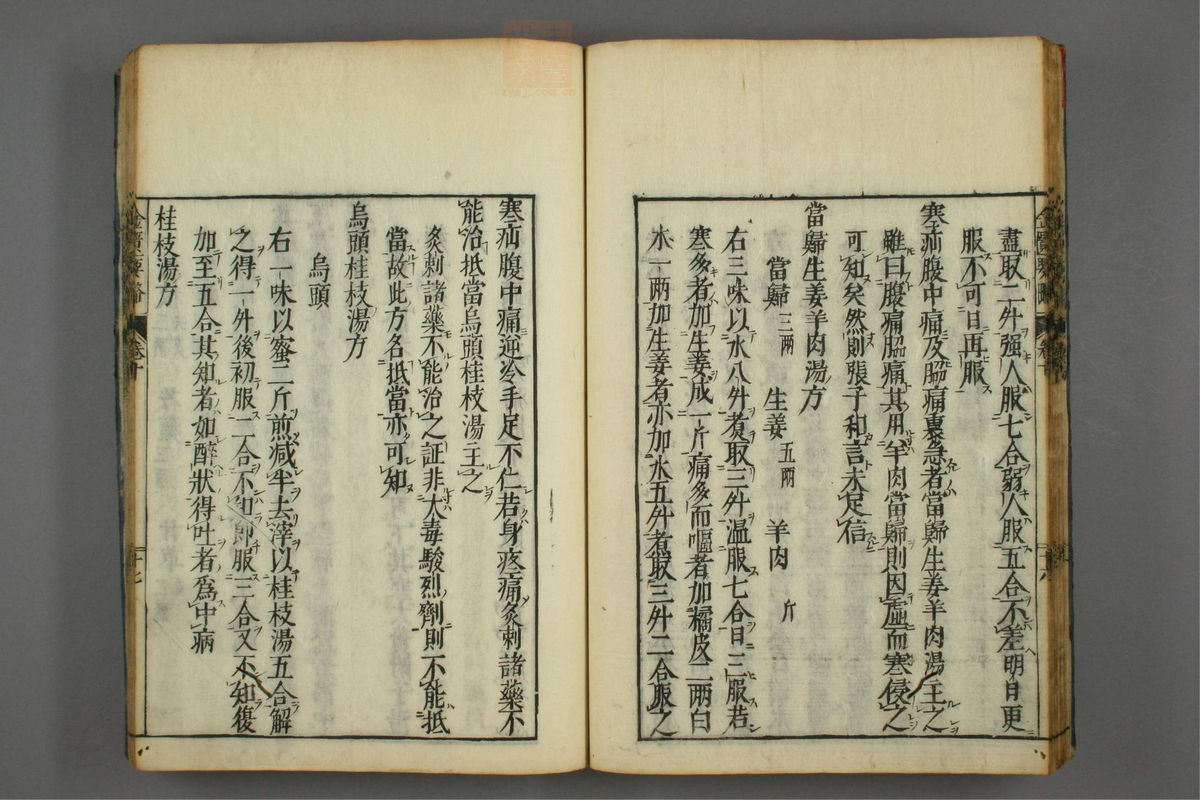 盡取二升强人服七合弱人服五合不差明日更
服不可日再服
寒疝腹中痛及脇痛裏急者當歸生姜羊肉湯主之
雖曰腹痛脇痛其用羊肉當歸則因虛而寒侵之
可知矣然則張子和言未足信
當歸生姜羊肉湯方
當歸三兩 生姜五兩 羊肉斤
右三味以水八升煑取三升温服七合日三服若
寒多者加生姜成一斤痛多而嘔者加橘皮二兩白
朮一兩加生姜者亦加水五升煑取三升二合服之
寒疝腹中痛逆冷手足不仁若身疼痛灸刺諸藥不
能治抵當烏頭桂枝湯主之
灸刺諸藥不能治之証非大毒駿烈劑則不能抵
當故此方名抵當亦可知
烏頭桂枝湯方
烏頭
右一味以蜜二斤煎減半去滓以桂枝湯五合解
之得一升後初服二合不知即服三合又不知復
加至五合其知者如醉狀得吐者爲中病
桂枝湯方